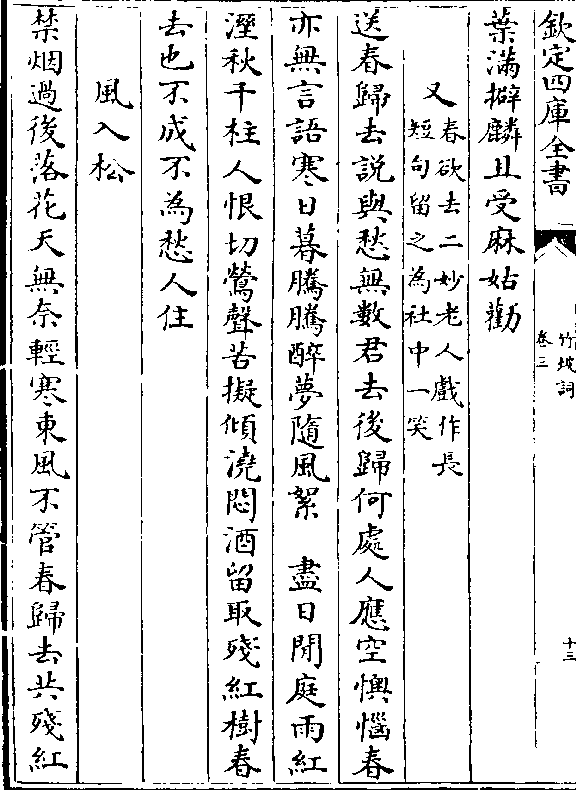 欽定四庫全書
竹坡詞
卷三
十三
葉滿擗麟且受麻姑勸
又春欲去二妙老人戲作長
短句留之為社中一笑
送春歸去説與愁無數君去後歸何處人應空懊惱春
亦無言語寒日暮騰騰醉夢隨風絮　盡日閒庭雨紅
溼秋千柱人恨切鶯聲苦擬傾澆悶酒留取殘紅樹春
去也不成不為愁人住
風入松
禁烟過後落花天無奈輕寒東風不管春歸去共殘紅